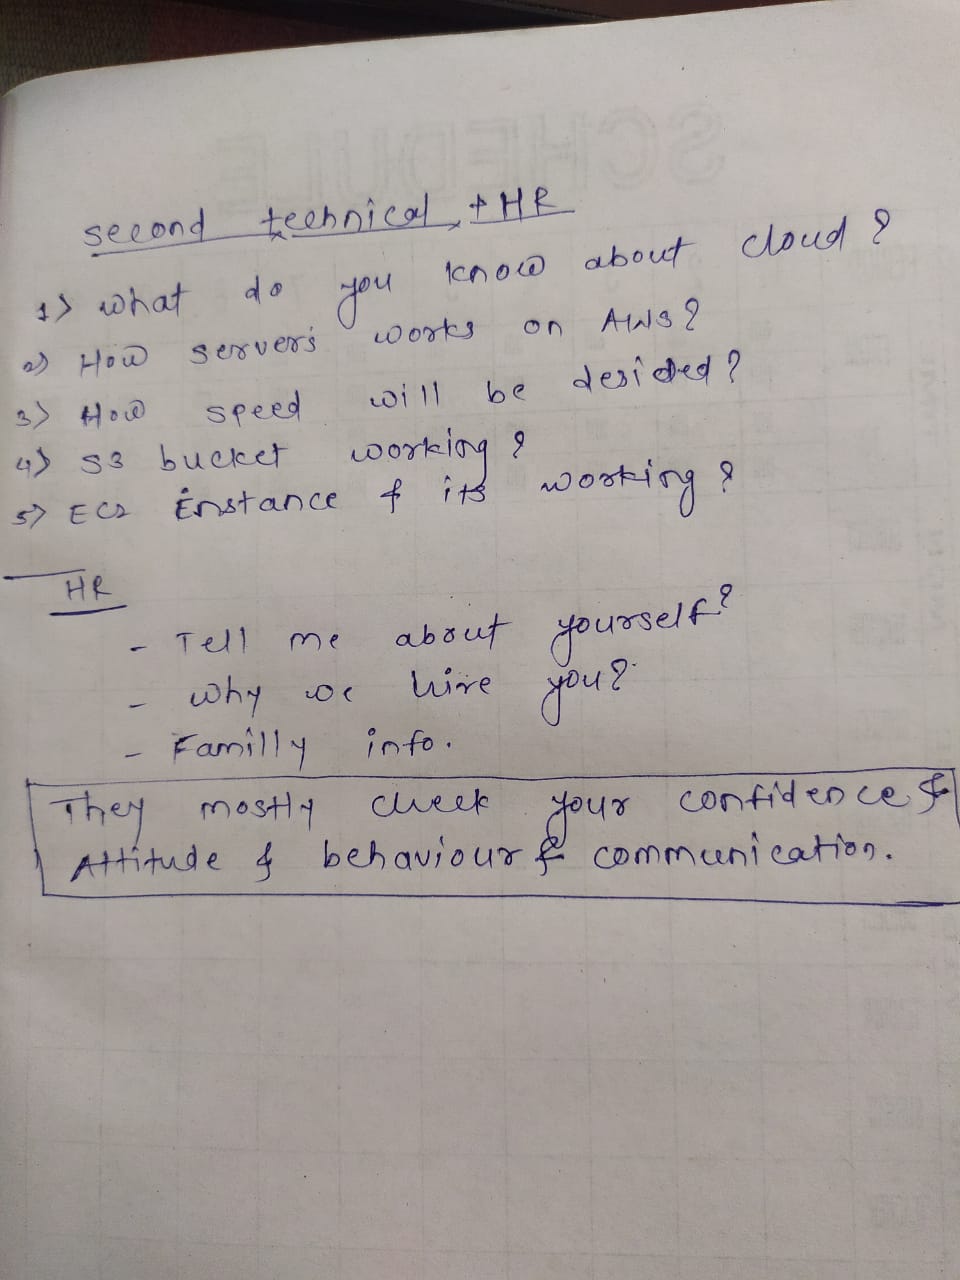 second technical + HR
1) what do you know about cloud?
2) How servers works on AWS?
3) How speed will be desided?
4) S3 bucket working?
5) EC2 Instance & its working?
HR
- Tell me about yourself?
- why we hire you?
- Familly info.
They mostly check your confidence &
Attitude & behaviour & communication.
SCHEDULE